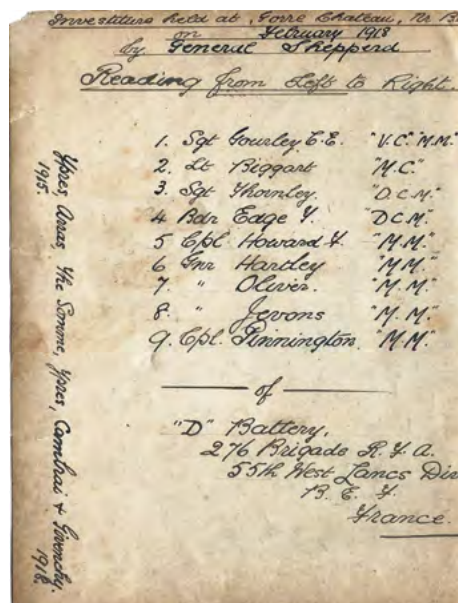 Investiture held at Gorre Chateau, Nr
on February 1918
by General Shepperd
Reading from Left to Right.
1. Sgt Gourley C.E. "V.C." "M.M."
2. Lt Biggart "M.C."
3. Sgt Thornley. "D.C.M."
4 Bdr Edge F. "DCM."
5 Cpl Howard F. "M.M."
6 Gnr Hartley "M.M."
7. " Oliver. "M.M."
8. " Jevons "M.M."
9. Cpl. Pinnington. "M.M."
of
"D" Battery,
276 Brigade R.F.A.
55th West Lancs Div
B.E.F.
France.
Ypres, Arras, The Somme, Ypres, Cambrai & Givenchy.
1915. 1918.